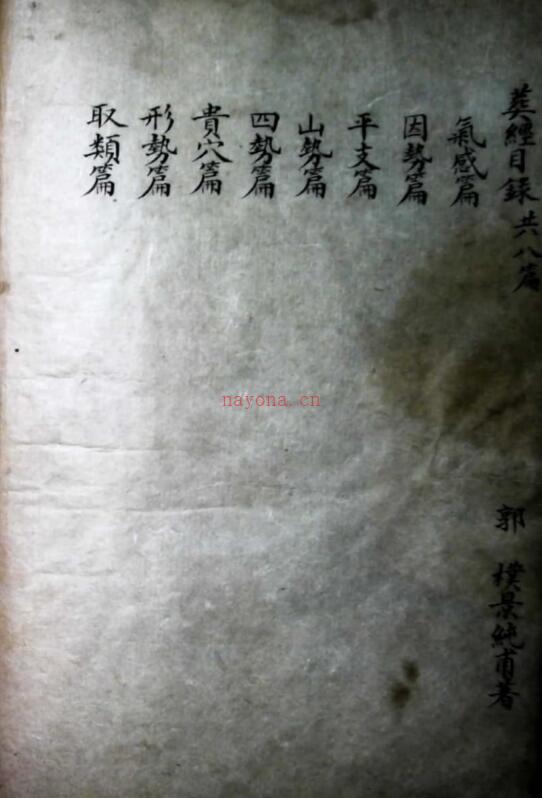 葬經目錄 共八篇
郭 樸景純甫著
氣感篇
因勢篇
平支篇
山勢篇
四勢篇
貴穴篇
形勢篇
取類篇
nayona.cn